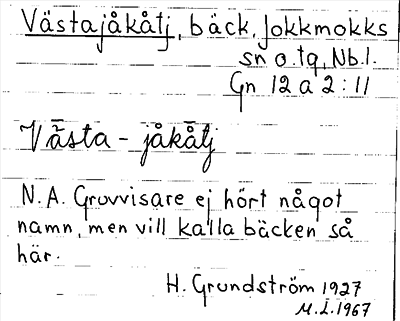 Västajåkåtj, bäck, Jokkmokks
sn o. tg, Nb.l.
Gn 12 a 2 : 11
Västa - jåkåtj
N. A. Gruvvisare ej hört något
namn, men vill kalla bäcken så
här.
H. Grundström 1927
M.L. 1967